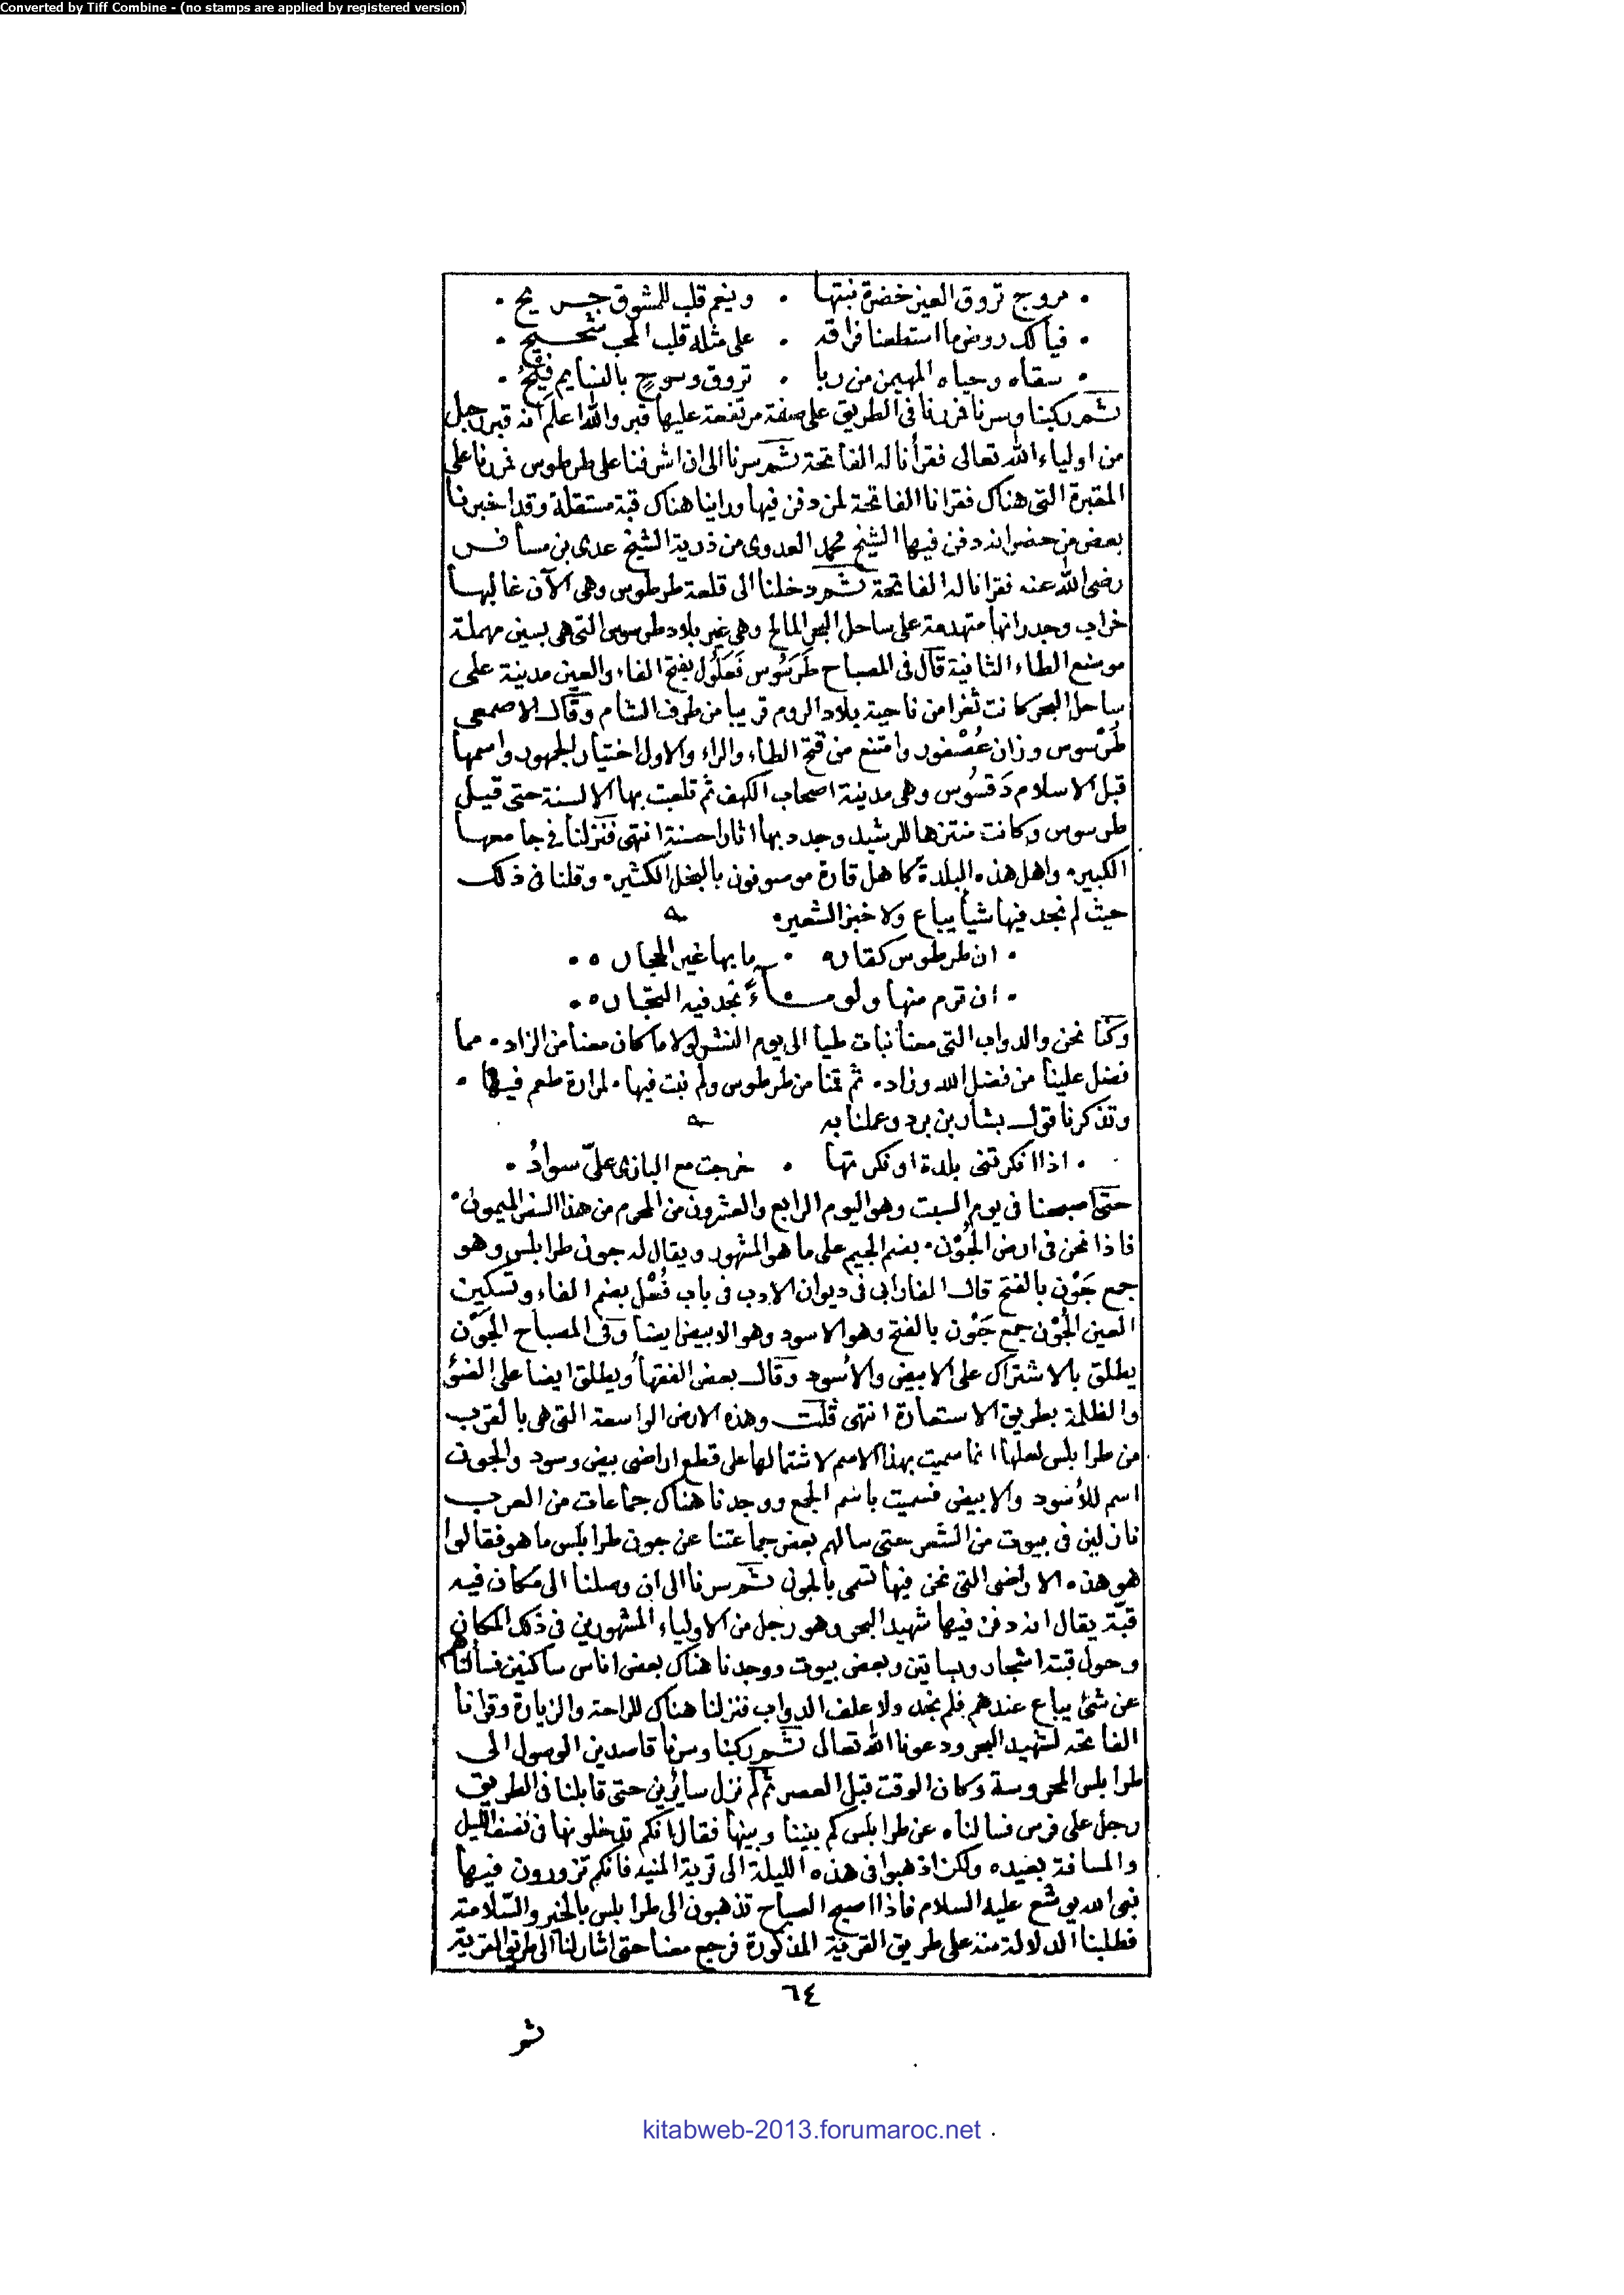 Converted by Tiff Combine - (no stamps are applied by registered version)
• مروج تروق العين خضرة نبتها • وينعم قلب للمشوق جريح •
• فيا لك روض ما استطعنا فراقه • على مثله قلب المحب شحيح •
• سقاه وحياه المهيمن من ربا • تروق وسوح بالنسايم فيح •
ثم ركبنا وسرنا فمررنا فى الطريق على صفة مرتفعة عليها قبر والله اعلم انه قبر رجل
من اولياء الله تعالى فقرأنا له الفاتحة ثم سرنا الى ان اشرفنا على طرطوس فمررنا على
المقبرة التى هناك فقرانا الفاتحة لمن دفن فيها وراينا هناك قبة مستقلة وقد اخبرنا
بعض من حضر انه دفن فيها الشيخ محمد العدوى من ذرية الشيخ عدى بن مسافر
رضى الله عنه فقرانا له الفاتحة ثم دخلنا الى قلعة طرطوس وهى الآن غالبها
خراب وجدرانها متهدمة على ساحل البحر المالح وهى غير بلاد طرسوس التى هى بسين مهملة
موضع الطاء الثانية قال فى المصباح طَرَسُوس فَعَلُول بفتح الفاء والعين مدينة على
ساحل البحر كانت ثغرا من ناحية بلاد الروم قريبا من طرف الشام وقال الاصمعى
طُرْسوس وزان عُصْفور وامتنع من فتح الطاء والراء والاول اختيار الجمهور واسمها
قبل الاسلام دَقسُوس وهى مدينة اصحاب الكهف ثم تلعبت بها الالسنة حتى قيل
طرسوس وكانت منتزها للرشيد وجدد بها اثارا حسنة انتهى فنزلنا فى جامعها
الكبير• واهل هذه البلدة كاهل قارة موسوفون بالبخل الكثير• وقلنا فى ذلك
حيث لم نجد فيها شيأ يباع ولا خبز الشعير•
• ان طرطوس كقاره • ما بها غير الحجاره •
• ان ترم منها ولو ماءً تجد فيه التجاره •
وكنا نحن والدواب التى معنا نبات طيا الى يوم النشر لولا ما كان معنا من الزاد• مما
فضل علينا من فضل الله وزاد• ثم قمنا من طرطوس ولم نبت فيها• لمرارة طعم فيها •
وتذكرنا قول بشار بن برد وعملنا به
• اذا انكرتنى بلدة او نكرتها • خرجت مع البازى علىّ سوادُ •
حتى اصبحنا فى يوم السبت وهو اليوم الرابع والعشرون من المحرم من هذا السفر الميمون•
فاذا نحن فى ارض الجُوْن• بضم الجيم على ما هو المشهور ويقال له جون طرابلس وهو
جمع جَوْن بالفتح قال الفارابى فى ديوان الادب فى باب فُعْل بضم الفاء وتسكين
العين الجُوْن جمع جَوْن بالفتح وهو الاسود وهو الابيض ايضا وفى المصباح الجَوْن
يطلق بالاشتراك على الابيض والأسود وقال بعض الفقهأ ويطلق ايضا على الضوء
والظلمة بطريق الاستعارة انتهى قلت وهذه الارض الواسعة التى هى بالقرب
من طرابلس لعلها انما سميت بهذا الاسم لاشتمالها على قطع اراضى بيض وسود والجون
اسم للأسود والابيض فسميت باسْم الجمع ووجدنا هناك جماعات من العرب
نازلين فى بيوت من الشَعر حتى سالهم بعض جماعتنا عن جون طرابلس ما هو فقالوا
هو هذه الاراضى التى نحن فيها تسمى بالجون ثم سرنا الى ان وصلنا الى مكان فيه
قبّة يقال انه دفن فيها شهيد البحر وهو رجل من الاولياء المشهورين فى ذلك المكان
وحول قبته اشجار وبساتين وبعض بيوت ووجدنا هناك بعض اناس ساكنين فسألناهم
عن شئ يباع عندهم فلم نجد ولا علف الدواب فنزلنا هناك للراحة والزيارة وقرانا
الفاتحة لشهيد البحر ودعونا الله تعالى ثم ركبنا وسرنا قاصدين الوصول الى
طرابلس المحروسة وكان الوقت قبل العصر ثم لم نزل سائرين حتى قابلنا فى الطريق
رجل على فرس فسالناه عن طرابلس كم بيننا وبينها فقال انكم تدخلونها فى نصف الليل
والمسافة بعيده ولكن اذهبوا فى هذه الليلة الى قرية المنيه فانكم تزورون فيها
نبى الله يوشع عليه السلام فاذا اصبح الصباح تذهبون الى طرابلس بالخير والسّلامة
فطلبنا الدلالة منه على طريق القرية المذكورة فرجع معنا حتى اشار لنا الى طريق القرية
٦٤
ثم
kitabweb-2013.forumaroc.net